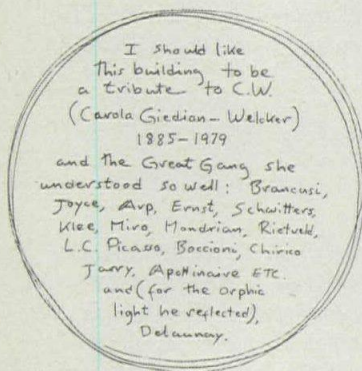 I should like
This building to be
a tribute to C.W.
(Carola Giedion-Welcker)
1885-1979
and the Great Gang she
understood so well: Brancusi,
Joyce, Arp, Ernst, Schwitters,
Klee, Miro, Mondrian, Rietveld,
L.C. Picasso, Boccioni, Chirico
Jarry, Apollinaire ETC.
and (for the orphic
light he reflected),
Delaunay.